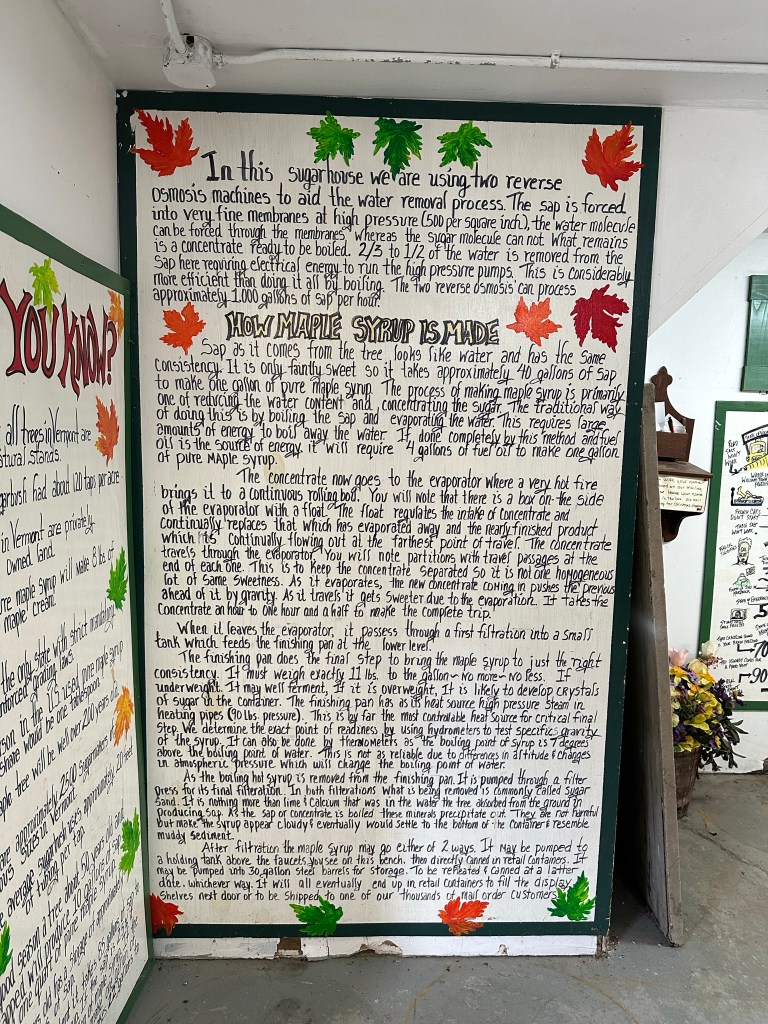 In this sugarhouse we are using two reverse
osmosis machines to aid the water removal process. The sap is forced
into very fine membranes at high pressure (500 per square inch), the water molecule
can be forced through the membranes, whereas the sugar molecule can not. What remains
is a concentrate ready to be boiled. 2/3 to 1/2 of the water is removed from the
sap here requiring electrical energy to run the high pressure pumps. This is considerably
more efficient than doing it all by boiling. The two reverse osmosis can process
approximately 1,000 gallons of sap per hour.
HOW MAPLE SYRUP IS MADE
Sap as it comes from the tree, looks like water, and has the same
consistency. It is only faintly sweet so it takes approximately 40 gallons of sap
to make one gallon of pure maple syrup. The process of making maple syrup is primarily
one of reducing the water content and concentrating the sugar. The traditional way
of doing this is by boiling the sap and evaporating the water. This requires large
amounts of energy to boil away the water. If done completely by this method and fuel
oil is the source of energy, it will require 4 gallons of fuel oil to make one gallon
of pure Maple syrup.
The concentrate now goes to the evaporator where a very hot fire
brings it to a continuous rolling boil. You will note that there is a box on the side
of the evaporator with a float. The float regulates the intake of concentrate and
continually replaces that which has evaporated away and the nearly finished product
which is continually flowing out at the farthest point of travel. The concentrate
travels through the evaporator. You will note partitions with travel passages at the
end of each one. This is to keep the concentrate separated so it is not one homogeneous
lot of same sweetness. As it evaporates, the new concentrate coming in pushes the previous
ahead of it by gravity. As it travels it gets sweeter due to the evaporation. It takes the
concentrate an hour to one hour and a half to make the complete trip.
When it leaves the evaporator, it passess through a first filtration into a small
tank which feeds the finishing pan at the lower level.
The finishing pan does the final step to bring the maple syrup to just the right
consistency. It must weigh exactly 11 lbs. to the gallon~no more~no less. If
underweight. It may well ferment, If it is overweight, It is likely to develop crystals
of sugar in the container. The finishing pan has as its heat source high pressure steam in
heating pipes (90 lbs. pressure). This is by far the most controllable heat source for critical final
step. We determine the exact point of readiness by using hydrometers to test specific gravity
of the syrup. It can also be done by thermometers as the boiling point of syrup is 7 degrees
above the boiling point of water. This is not as reliable due to differences in altitude & changes
in atmospheric pressure which will change the boiling point of water.
As the boiling hot syrup is removed from the finishing pan. It is pumped through a filter
press for its final filteration. In both filterations what is being removed is commonly called sugar
sand. It is nothing more than lime & calcium that was in the water the tree absorbed from the ground in
producing sap. As the sap or concentrate is boiled these minerals precipitate out. They are not harmful
but make the syrup appear cloudy & eventually would settle to the bottom of the container & resemble
muddy sediment.
After filtration the maple syrup may go either of 2 ways. It may be pumped to
a holding tank above the faucets you see on this bench. then directly canned in retail containers. It
may be pumped into 30 gallon steel barrels for storage. To be reheated & canned at a latter
date. whichever way. It will all eventually end up in retail containers to fill the display
shelves next door or to be shipped to one of our thousands of mail order customers.
YOU KNOW?
all trees in Vermont are
natural stands.
had about 120 taps per acre
in Vermont are privately
owned land.
maple syrup will make 8 lbs of
maple cream.
the only state with strict mandatory
laws.
well over 200 years old